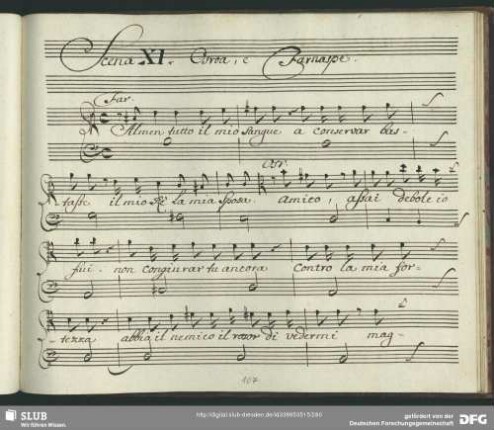 Scena XI. Osroa, e Farnaspe.
Far.
Almen tutto il mio sangue a conservar bas-
Osr.
tasse il mio Rè la mia sposa. Amico, assai debole io
fui. non congiurar tu ancora contro la mia for-
-tezza abbia il nemico il rosor di vedermi mag-
107
SLUB
Wir führen Wissen.
http://digital.slub-dresden.de/id339850515/280
gefördert von der
Deutschen Forschungsgemeinschaft
DFG